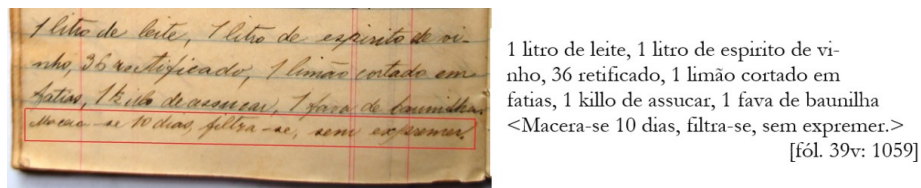 1 litro de leite, 1 litro de espirito de vi-
nho, 36 rectificado, 1 limão cortado em
fatias, 1 killo de assucar, 1 fava de baunilha
Macera-se 10 dias, filtra-se, sem expremer.
1 litro de leite, 1 litro de espirito de vi-
nho, 36 retificado, 1 limão cortado em
fatias, 1 killo de assucar, 1 fava de baunilha
<Macera-se 10 dias, filtra-se, sem expremer.>
[fól. 39v: 1059]